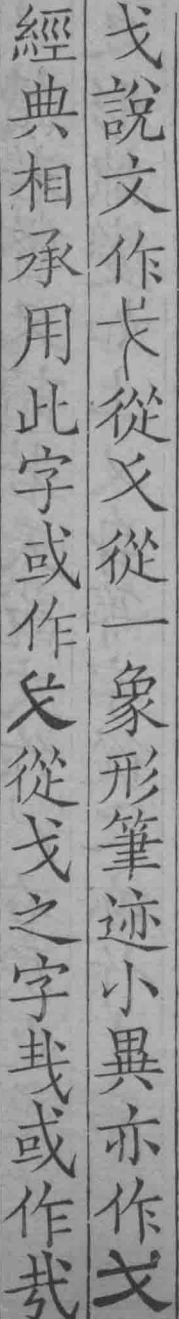 戈說文作戈從弋從一象形筆迹小異亦作戈
經典相承用此字或作戈從戈之字㦳或作㦲